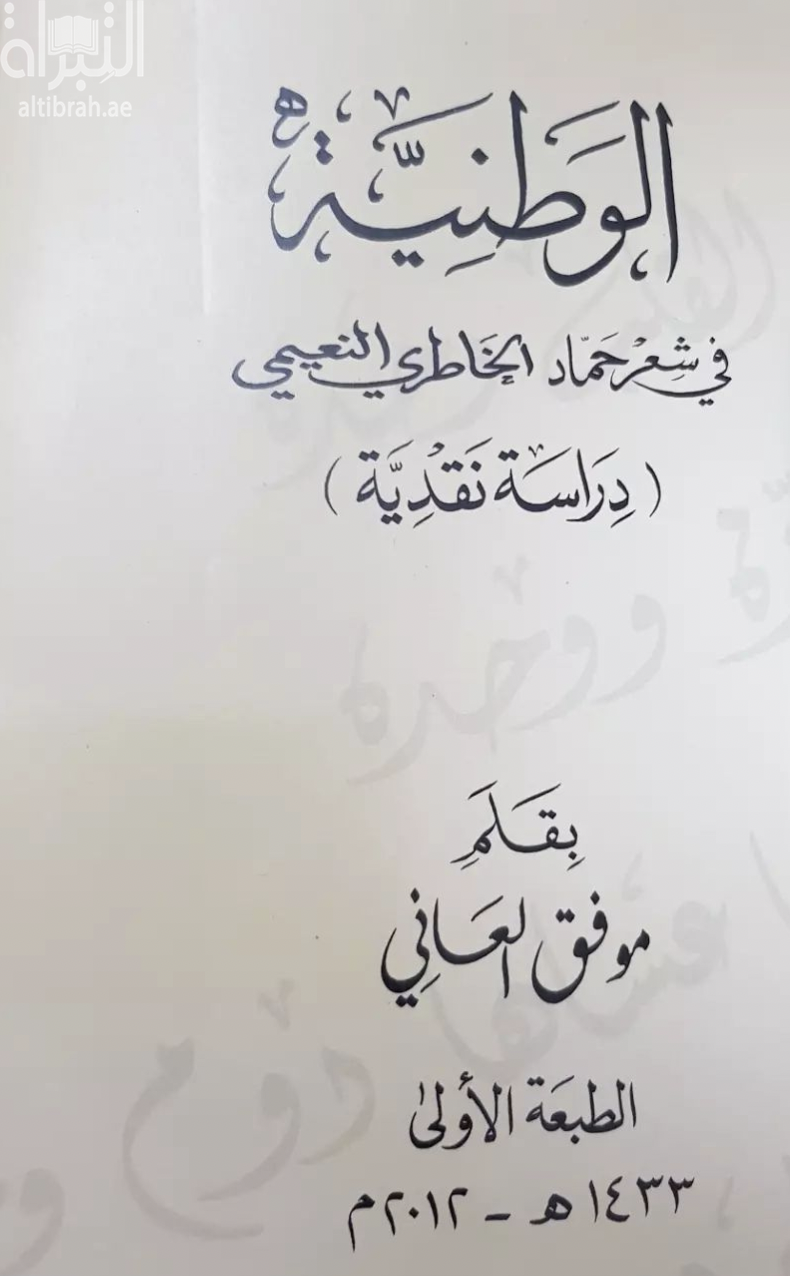 التبراه
altibrah.ae
الوَطنِيَّة
في شِعْر حَمّاد الخَاطري النعيمي
( دِرَاسَة نَقْدِيَّة )
بِقَلَمِ
موفق العَاني
الطبعَة الأولىٰ
١٤٣٣ هـ - ٢٠١٢ م